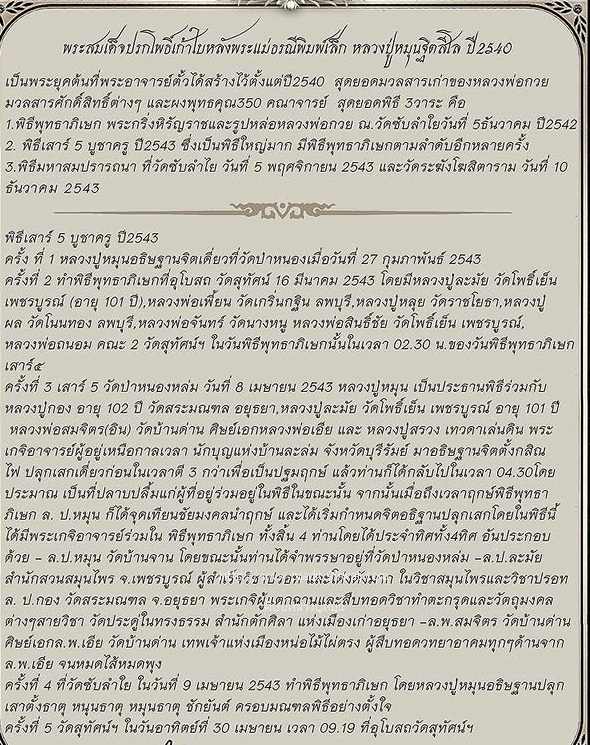 พระสมเด็จปรกโพธิ์เก้าใบหลังพระแม่ธรณีพิมพ์เล็ก หลวงปู่หมุนฐิตสีโล ปี2540
เป็นพระยุคต้นที่พระอาจารย์ตั้วได้สร้างไว้ตั้งแต่ปี2540 สุดยอดมวลสารเก่าของหลวงพ่อกวย
มวลสารศักดิ์สิทธิ์ต่างๆ และผงพุทธคุณ350 คณาจารย์ สุดยอดพิธี 3วาระ คือ
1.พิธีพุทธาภิเษก พระกริ่งหิรัญราชและรูปหล่อหลวงพ่อกวย ณ.วัดซับลำใยวันที่ 5ธันวาคม ปี2542
2. พิธีเสาร์ 5 บูชาครู ปี2543 ซึ่งเป็นพิธีใหญ่มาก มีพิธีพุทธาภิเษกตามลำดับอีกหลายครั้ง
3.พิธีมหาสมปรารถนา ที่วัดซับลำไย วันที่ 5 พฤศจิกายน 2543 และวัดระฆังโฆสิตาราม วันที่ 10
ธันวาคม 2543
พิธีเสาร์ 5 บูชาครู ปี2543
ครั้ง ที่ 1 หลวงปู่หมุนอธิษฐานจิตเดี่ยวที่วัดป่าหนองเมื่อวันที่ 27 กุมภาพันธ์ 2543
ครั้งที่ 2 ทำพิธีพุทธาภิเษกที่อุโบสถ วัดสุทัศน์ 16 มีนาคม 2543 โดยมีหลวงปู่ละมัย วัดโพธิ์เย็น
เพชรบูรณ์ (อายุ 101 ปี),หลวงพ่อเพี้ยน วัดเกริ่นกฐิน ลพบุรี,หลวงปู่หลุย วัดราชโยธา,หลวงปู่
ผล วัดโนนทอง ลพบุรี,หลวงพ่อจันทร์ วัดนางหนู หลวงพ่อสินธิ์ชัย วัดโพธิ์เย็น เพชรบูรณ์,
หลวงพ่อถนอม คณะ 2 วัดสุทัศน์ฯ ในวันพิธีพุทธาภิเษกนั้นในเวลา 02.30 น.ของวันพิธีพุทธาภิเษก
เสาร์๕
ครั้งที่ 3 เสาร์ 5 วัดป่าหนองหล่ม วันที่ 8 เมษายน 2543 หลวงปู่หมุน เป็นประธานพิธีร่วมกับ
หลวงปู่กอง อายุ 102 ปี วัดสระมณฑล อยุธยา,หลวงปู่ละมัย วัดโพธิ์เย็น เพชรบูรณ์ อายุ 101 ปี
หลวงพ่อสมจิตร(อิน) วัดบ้านด่าน ศิษย์เอกหลวงพ่อเอีย และ หลวงปู่สรวง เทวดาเล่นดิน พระ
เกจิอาจารย์ผู้อยู่เหนือกาลเวลา นักบุญแห่งบ้านละลม จังหวัดบุรีรัมย์ มาอธิษฐานจิตตั้งกสิณ
ไฟ ปลุกเสกเดี่ยวก่อนในเวลาตี 3 กว่าเพื่อเป็นปฐมฤกษ์ แล้วท่านก็ได้กลับไปในเวลา 04.30โดย
ประมาณ เป็นที่ปลาบปลื้มแก่ผู้ที่อยู่ร่วมอยู่ในพิธีในขณะนั้น จากนั้นเมื่อถึงเวลาฤกษ์พิธีพุทธา
ภิเษก ล. ป.หมุน ก็ได้จุดเทียนชัยมงคลนำฤกษ์ และได้เริ่มกำหนดจิตอธิฐานปลุกเสกโดยในพิธีนี้
ได้มีพระเกจิอาจารย์ร่วมใน พิธีพุทธาภิเษก ทั้งสิ้น 4 ท่านโดยได้ประจำทิศทั้ง4ทิศ อันประกอบ
ด้วย - ล.ป.หมุน วัดบ้านจาน โดยขณะนั้นท่านได้จำพรรษาอยู่ที่วัดป่าหนองหล่ม -ล.ป.ละมัย
สำนักสวนสมุนไพร จ.เพชรบูรณ์ ผู้สำเร็จวิชาปรอท และโด่งดังมาก ในวิชาสมุนไพรและวิชาปรอท
ล. ป.กอง วัดสระมณฑล จ.อยุธยา พระเกจิผู้แตกฉานและสืบทอดวิชาทำตะกรุดและวัตถุมงคล
ต่างๆสายวิชา วัดประดู่ในทรงธรรม สำนักตักศิลา แห่งเมืองเก่าอยุธยา -ล.พ.สมจิตร วัดบ้านด่าน
ศิษย์เอกล.พ.เอีย วัดบ้านด่าน เทพเจ้าแห่งเมืองหน่อไม้ไผ่ตรง ผู้สืบทอดวทยาอาคมทุกๆด้านจาก
ล.พ.เอีย จนหมดไส้หมดพุง
ครั้งที่ 4 ที่วัดซับลำใย ในวันที่ 9 เมษายน 2543 ทำพิธีพุทธาภิเษก โดยหลวงปู่หมุนอธิษฐานปลุก
เสาตั้งธาตุ หนุนธาตุ หมุนธาตุ ชักยันต์ ครอบมณฑลพิธีอย่างตั้งใจ
ครั้งที่ 5 วัดสุทัศน์ฯ ในวันอาทิตย์ที่ 30 เมษายน เวลา 09.19 ที่อุโบสถวัดสุทัศน์ฯ